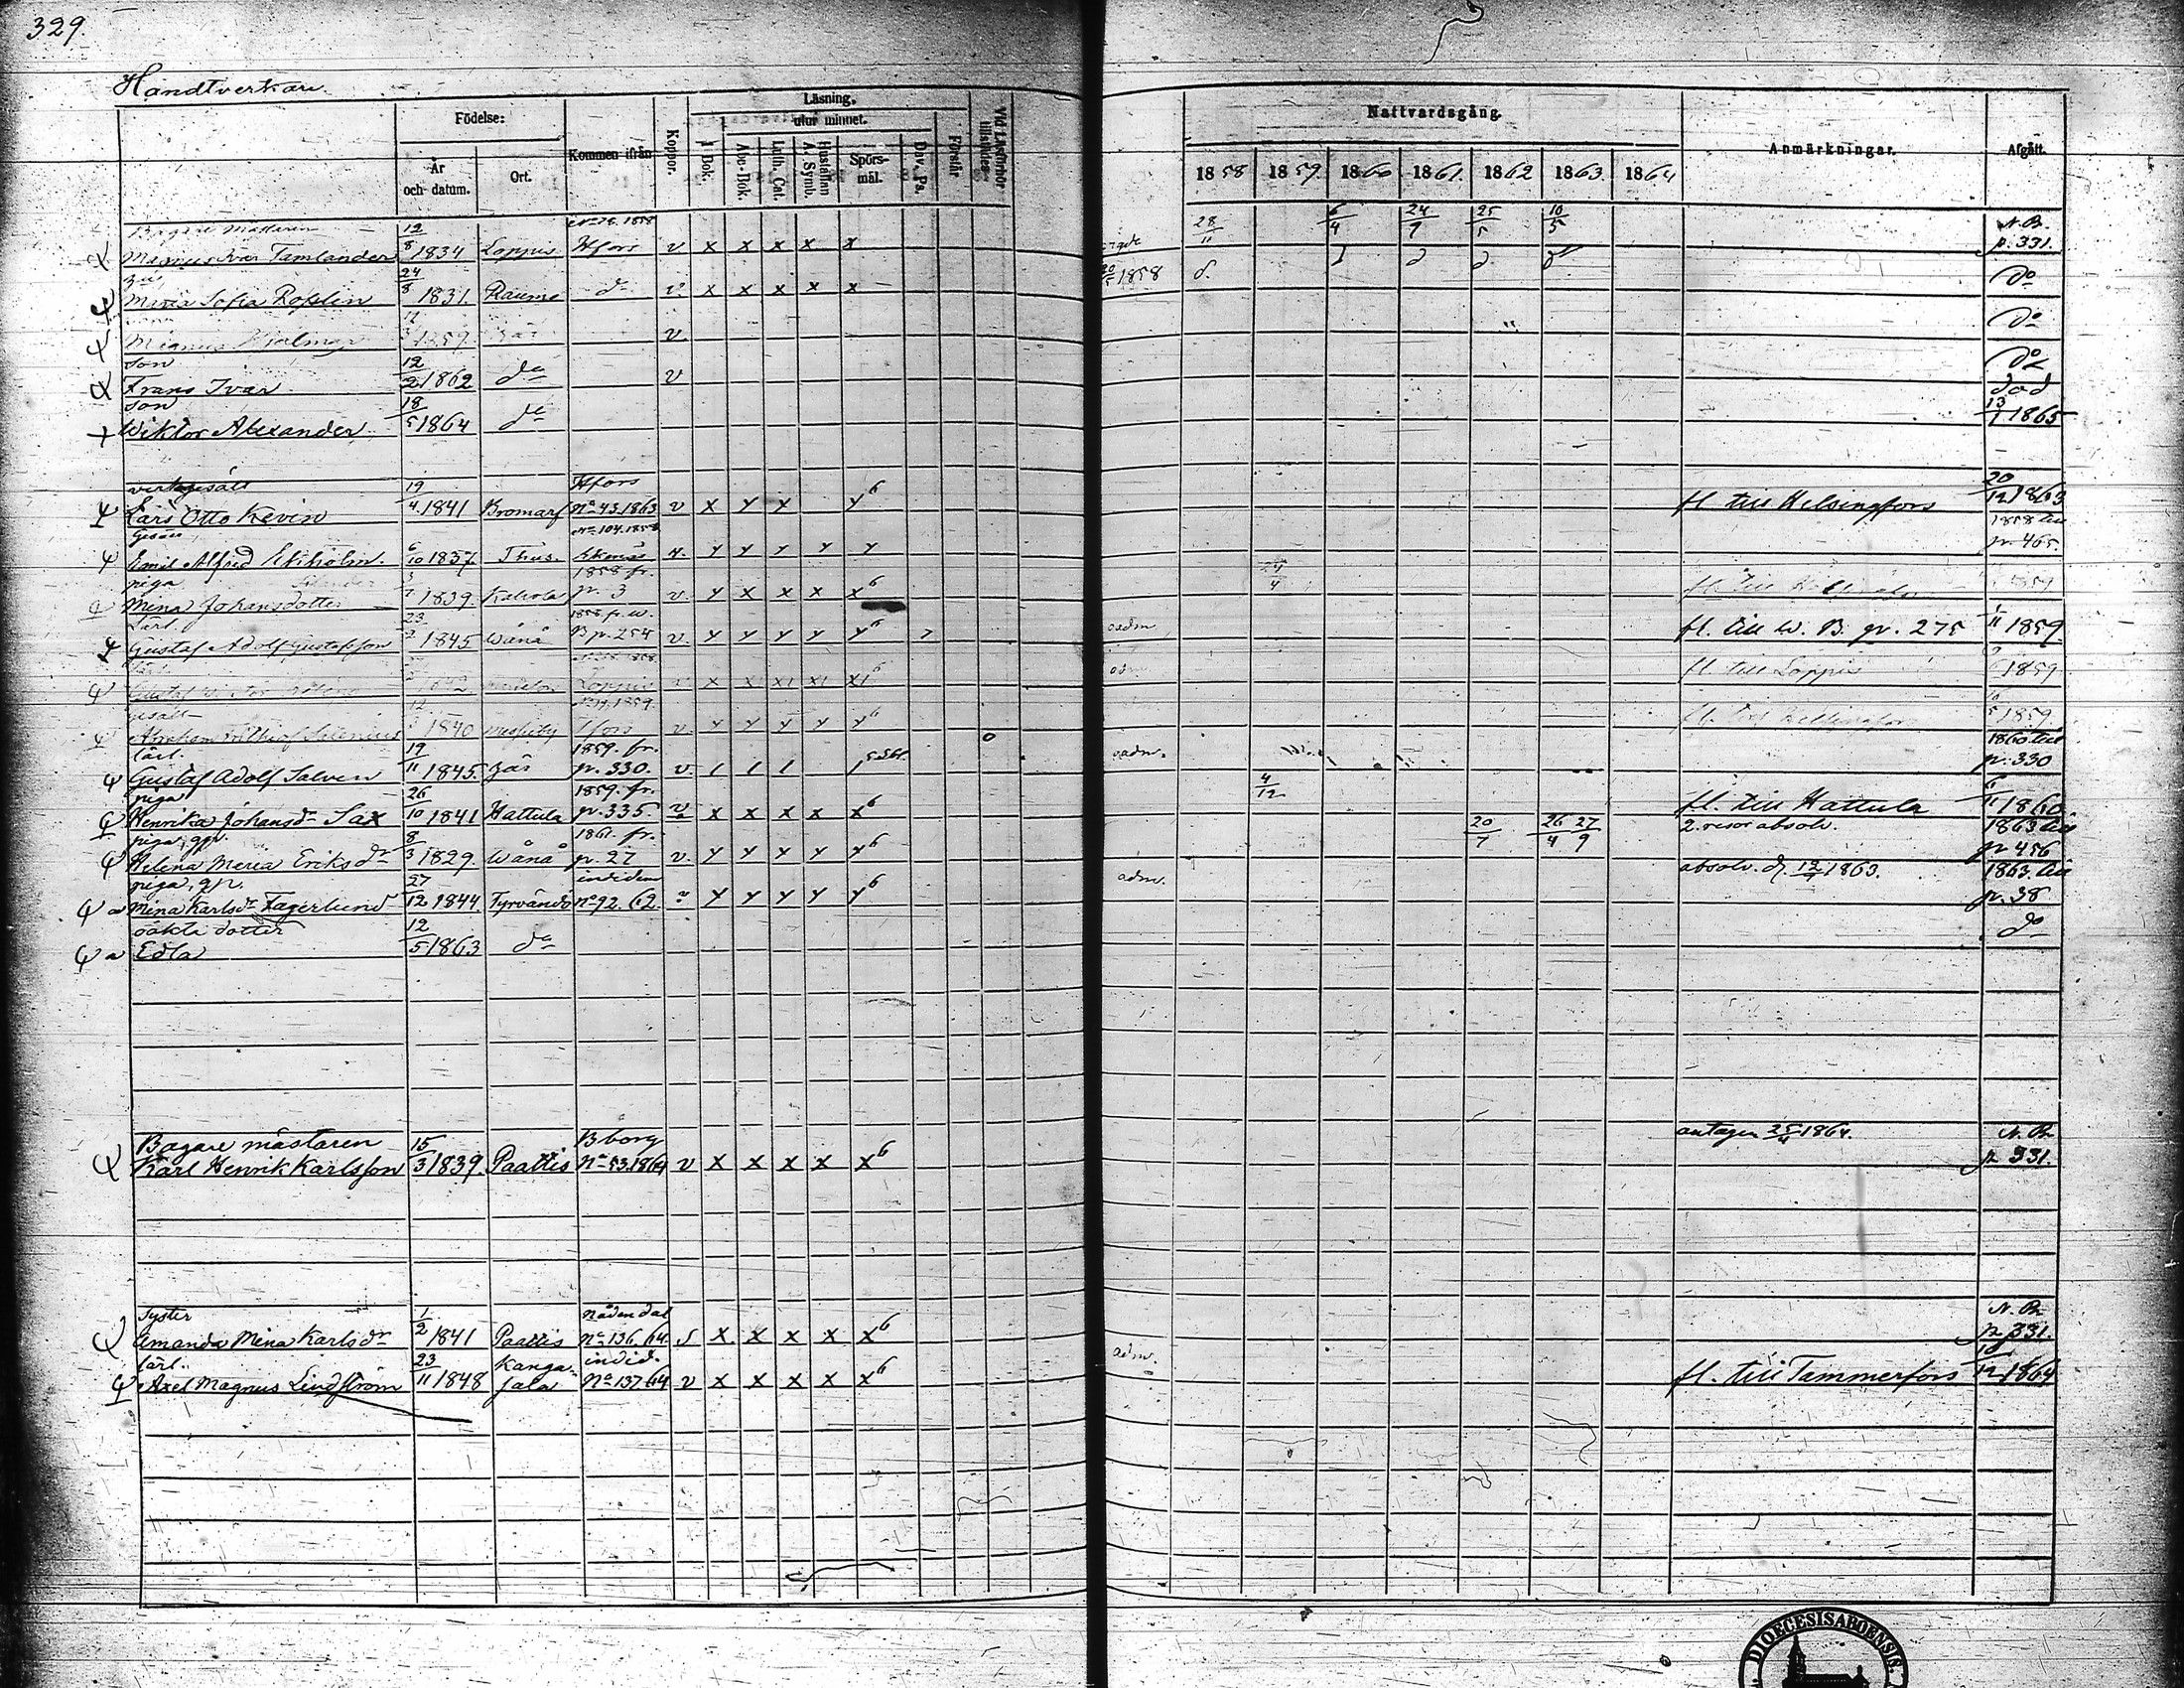 329.
Handtverkare.
Födelse: Kommen ifrån Koppor. Läsning. Vid Läsförhör tillstädes
utur minnet. Förstår
År och datum. Ort. I Bok. Abc-Bok. Luth. Cat. Hustaflan A. Symb. Spörsmål. Dav. Ps.
Nattvardsgång. Anmärkningar. Afgått.
1858 1859. 1860 1861. 1862 1863. 1864
Bagare Mästaren 12 No 76. 1858 28 6 24 25 10 N.B.
Magnus Ivar Tamlander 8 1834 Loppis Hfors v x x x x x 11 4 9 5 5 p. 331.
24
Maria Sofia Roselin 8 1831. Raumo do v. x x x x x 1858 d. do
Magnus Hjalmar 1859. v. do
son 12
Frans Ivar 2 1862 da v do
son 18 död 13
Wiktor Alexander. 5 1864 da 1 1865
19 Hfors 20
Lars Otto Kevin 4 1841 Bromarf No 43. 1863 v x y x y6 fl. till Helsingfors 12 1863
Gesäll 6 No 104. 1858 1858 till
Emil Alfred Ekholm. 10 1837. Thus. Ekenäs v. y y y y y p. 465.
piga 1858 fr.
Mina Johansdotter 1839. Kalvola p. 3 v. y x x x x6 4
Lärl. 23 1858 fr. w.
Gustaf Adolf Gustafsson 1845 Wånå B. p. 254 v. y y y y y6 oadm. fl. till W. B. p. 275 11 1859
Loppis x x x1 x1 x16 adm. fl. till Loppis 1859
gesäll 12 No 19. 1859.
Abraham 1840 Hfors v. y y y y y6 1859
lärl. 19 1859. fr. 1860 till
Gustaf Adolf Salven 11 1845. här p. 330. v. 1 1 1 1 oadm. p. 330
piga 26 1859. fr. 4 6
Henrika Johansdr Sax 10 1841 Hattula p. 335. v x x x x x6 12 fl. till Hattula 11 1860
piga, gp. 8 1861. fr. 20 26 27 2. resor absolv. 1863 till
Helena Maria Eriksdr 3 1829. Wånå p. 27 v. y y y y y6 7 4 9 p 456
piga, gp. 27 indiden absolv. d. 12 1863. 1863. till
Mina Karlsdr Fagerlund 12 1844. Tyrvändö No 92. 62. y y y y y6 adm. p. 38
oäkta dotter 12
Edla 5 1863 da do
Bagare mästaren 15 B.borg antagen 25/4 1864. N. B.
Karl Henrik Karlsson 3 1839. Paattis No 53. 1864 v x x x x x6 p 331.
Syster 1 Nådendal N. B.
Amanda Mina Karlsdr 2 1841 Paattis No 136. 64. s x x x x x6 p 331.
lärl. 23 Kanga- indid. adm. 18
Axel Magnus Lindström 11 1848 sala No 137. 64 v x x x x x6 fl. till Tammerfors 12 1864
DIOECESIS ABOENSIS.